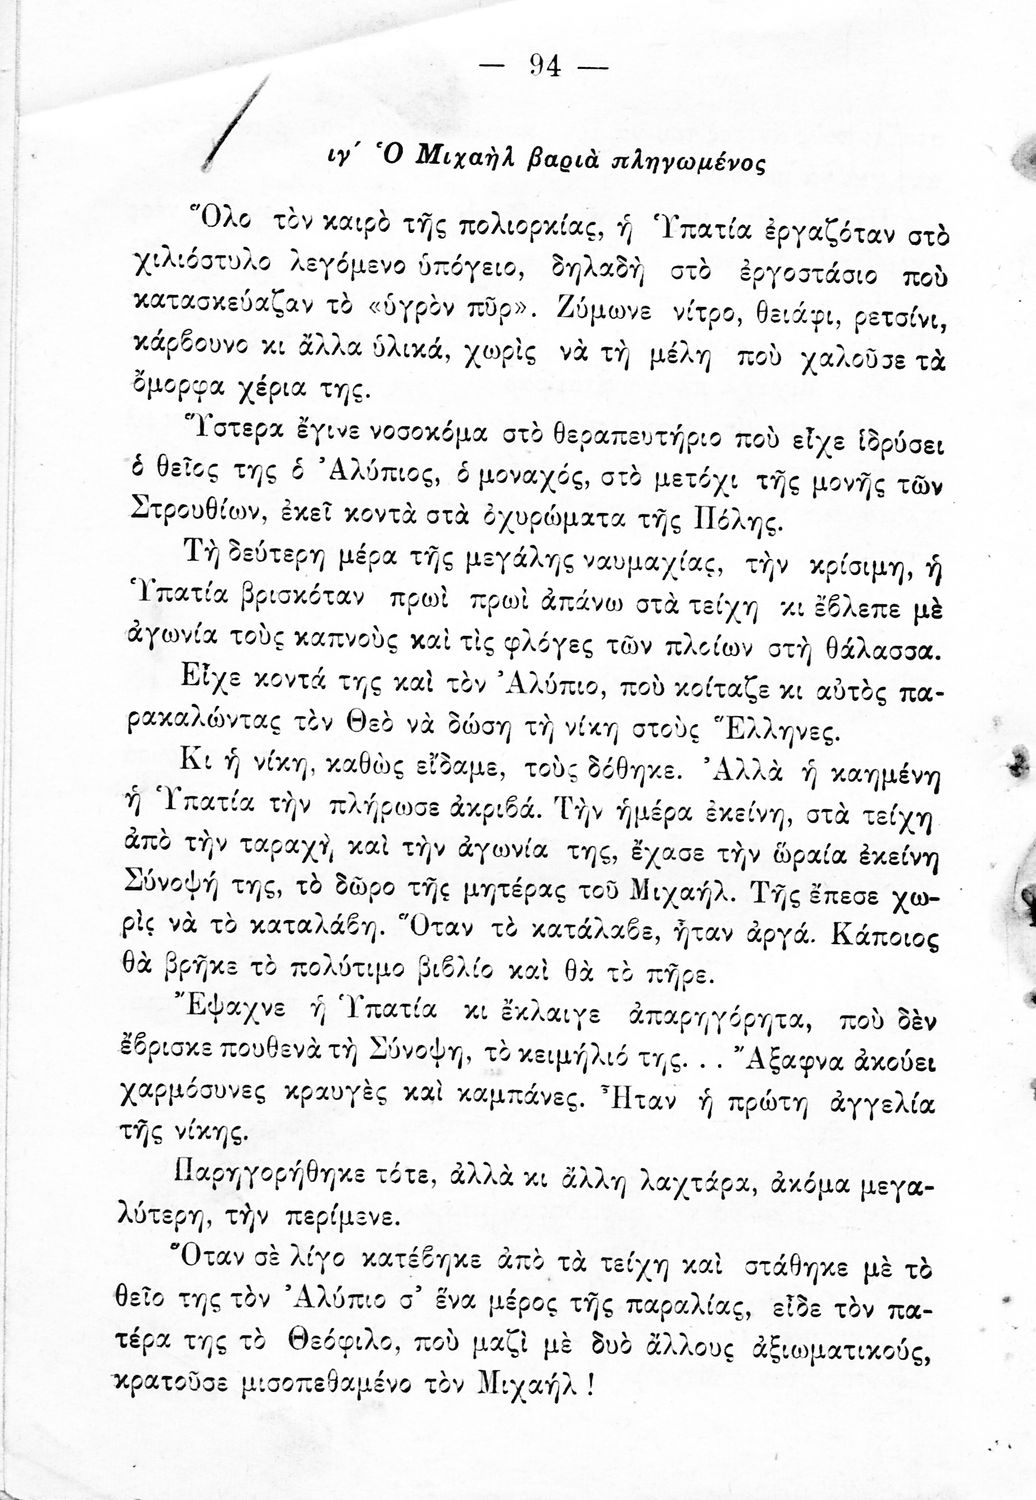 — 94 —
ιγ´ Ὁ Μιχαὴλ βαριὰ πληγωμένος
Ὅλο τὸν καιρὸ τῆς πολιορκίας, ἡ Ὑπατία ἐργαζόταν στὸ
χιλιόστυλο λεγόμενο ὑπόγειο, δηλαδὴ στὸ ἐργοστάσιο ποὺ
κατασκεύαζαν τὸ «ὑγρὸν πῦρ». Ζύμωνε νίτρο, θειάφι, ρετσίνι,
κάρβουνο κι ἄλλα ὑλικά, χωρὶς νὰ τὴ μέλη ποὺ χαλοῦσε τὰ
ὄμορφα χέρια της.
Ὕστερα ἔγινε νοσοκόμα στὸ θεραπευτήριο ποὺ εἶχε ἱδρύσει
ὁ θεῖος της ὁ Ἀλύπιος, ὁ μοναχός, στὸ μετόχι τῆς μονῆς τῶν
Στρουθίων, ἐκεῖ κοντὰ στὰ ὀχυρώματα τῆς Πόλης.
Τὴ δεύτερη μέρα τῆς μεγάλης ναυμαχίας, τὴν κρίσιμη, ἡ
Ὑπατία βρισκόταν πρωὶ πρωὶ ἀπάνω στὰ τείχη κι ἔβλεπε μὲ
ἀγωνία τοὺς καπνοὺς καὶ τὶς φλόγες τῶν πλοίων στὴ θάλασσα.
Εἶχε κοντά της καὶ τὸν Ἀλύπιο, ποὺ κοίταζε κι αὐτὸς πα-
ρακαλώντας τὸν Θεὸ νὰ δώση τὴ νίκη στοὺς Ἕλληνες.
Κι ἡ νίκη, καθὼς εἴδαμε, τοὺς δόθηκε. Ἀλλὰ ἡ καημένη
ἡ Ὑπατία τὴν πλήρωσε ἀκριβά. Τὴν ἡμέρα ἐκείνη, στὰ τείχη
ἀπὸ τὴν ταραχὴ καὶ τὴν ἀγωνία της, ἔχασε τὴν ὡραία ἐκείνη
Σύνοψή της, τὸ δῶρο τῆς μητέρας τοῦ Μιχαήλ. Τῆς ἔπεσε χω-
ρὶς νὰ τὸ καταλάβη. Ὅταν τὸ κατάλαβε, ἦταν ἀργά. Κάποιος
θὰ βρῆκε τὸ πολύτιμο βιβλίο καὶ θὰ τὸ πῆρε.
Ἔψαχνε ἡ Ὑπατία κι ἔκλαιγε ἀπαρηγόρητα, ποὺ δὲν
ἔβρισκε πουθενὰ τὴ Σύνοψη, τὸ κειμήλιό της. . . Ἄξαφνα ἀκούει
χαρμόσυνες κραυγὲς καὶ καμπάνες. Ἦταν ἡ πρώτη ἀγγελία
τῆς νίκης.
Παρηγορήθηκε τότε, ἀλλὰ κι ἄλλη λαχτάρα, ἀκόμα μεγα-
λύτερη, τὴν περίμενε.
Ὅταν σὲ λίγο κατέβηκε ἀπὸ τὰ τείχη καὶ στάθηκε μὲ τὸ
θεῖο της τὸν Ἀλύπιο σ' ἕνα μέρος τῆς παραλίας, εἶδε τὸν πα-
τέρα της τὸ Θεόφιλο, ποὺ μαζὶ μὲ δυὸ ἄλλους ἀξιωματικούς,
κρατοῦσε μισοπεθαμένο τὸν Μιχαήλ !